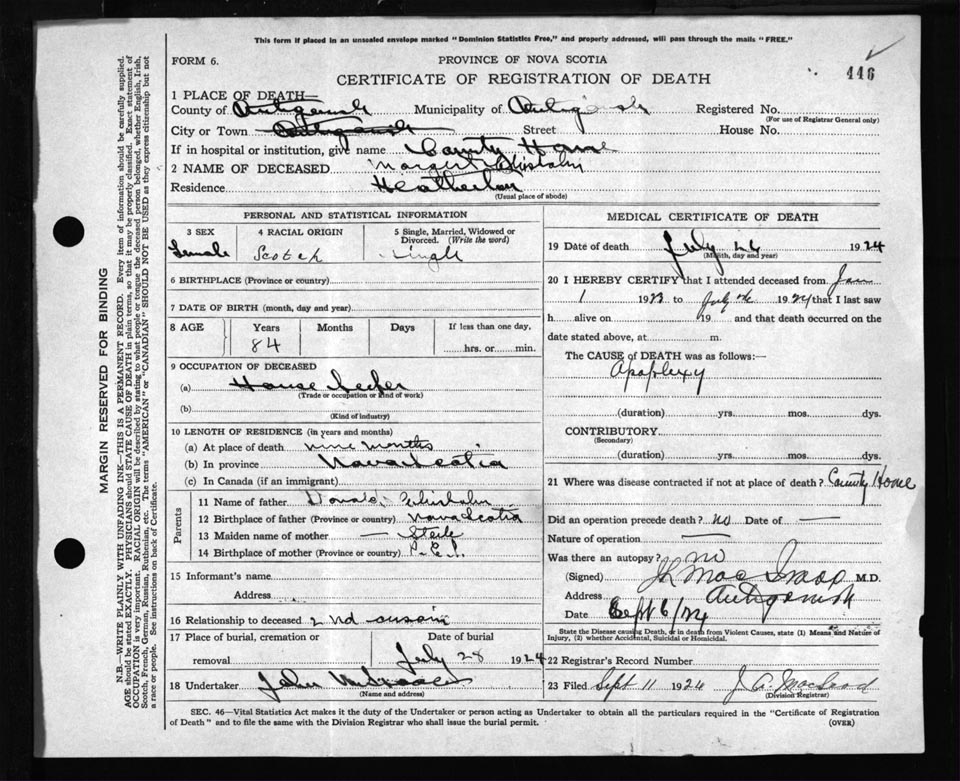 This form if placed in an unsealed envelope marked "Dominion Statistics Free," and properly addressed, will pass through the mails "FREE."
FORM 6.
PROVINCE OF NOVA SCOTIA
446
CERTIFICATE OF REGISTRATION OF DEATH
1 PLACE OF DEATH—
County of Antigonish Municipality of Antigonish Registered No.
(For use of Registrar General only)
City or Town Antigonish Street House No.
If in hospital or institution, give name County Home
2 NAME OF DECEASED Margaret Chisholm
Residence Heatherton
(Usual place of abode)
PERSONAL AND STATISTICAL INFORMATION
3 SEX 4 RACIAL ORIGIN 5 Single, Married, Widowed or Divorced. (Write the word)
Female Scotch Single
6 BIRTHPLACE (Province or country)
7 DATE OF BIRTH (month, day and year)
8 AGE Years Months Days If less than one day,
84 hrs. or min.
9 OCCUPATION OF DECEASED
(a) House keeper
(Trade or occupation or kind of work)
(b)
(Kind of industry)
10 LENGTH OF RESIDENCE (in years and months)
(a) At place of death nine months
(b) In province Nova Scotia
(c) In Canada (if an immigrant)
Parents
11 Name of father Donald Chisholm
12 Birthplace of father (Province or country) Nova Scotia
13 Maiden name of mother —
14 Birthplace of mother (Province or country) P.E.I.
15 Informant's name
Address
16 Relationship to deceased 2nd cousin
17 Place of burial, cremation or Date of burial
removal July 28 1924
18 Undertaker John
(Name and address)
MEDICAL CERTIFICATE OF DEATH
19 Date of death July 26 1924
(Month, day and year)
20 I HEREBY CERTIFY that I attended deceased from Jan
1 1923 to July 1924 that I last saw
h alive on 19 and that death occurred on
date stated above, at m.
The CAUSE of DEATH was as follows:—
Apoplexy
(duration) yrs. mos. dys.
CONTRIBUTORY
(Secondary)
(duration) yrs. mos. dys.
21 Where was disease contracted if not at place of death? County Home
Did an operation precede death? no Date of —
Nature of operation —
Was there an autopsy? no
(Signed) M.D.
Address Antigonish
Date Sept 6/24
State the Disease causing Death, or in death from Violent Causes, state (1) Means and Nature of
Injury, (2) whether Accidental, Suicidal or Homicidal.
22 Registrar's Record Number
23 Filed Sept 11 1924 J A MacLeod
(Division Registrar)
SEC. 46—Vital Statistics Act makes it the duty of the Undertaker or person acting as Undertaker to obtain all the particulars required in the "Certificate of Registration
of Death" and to file the same with the Division Registrar who shall issue the burial permit. (OVER)
MARGIN RESERVED FOR BINDING
N.B.—WRITE PLAINLY WITH UNFADING INK—THIS IS A PERMANENT RECORD. Every item of information should be carefully supplied.
AGE should be stated EXACTLY. PHYSICIANS should STATE CAUSE OF DEATH in plain terms, so that it may be properly classified. Exact statement of
OCCUPATION is very important. RACIAL ORIGIN will be described by stating to what people or tongue the deceased person belonged, whether English, Irish,
Scotch, French, German, Russian, Ruthenian, etc. The terms "AMERICAN" or "CANADIAN" SHOULD NOT BE USED as they express citizenship but not
a race or people. See instructions on back of Certificate.